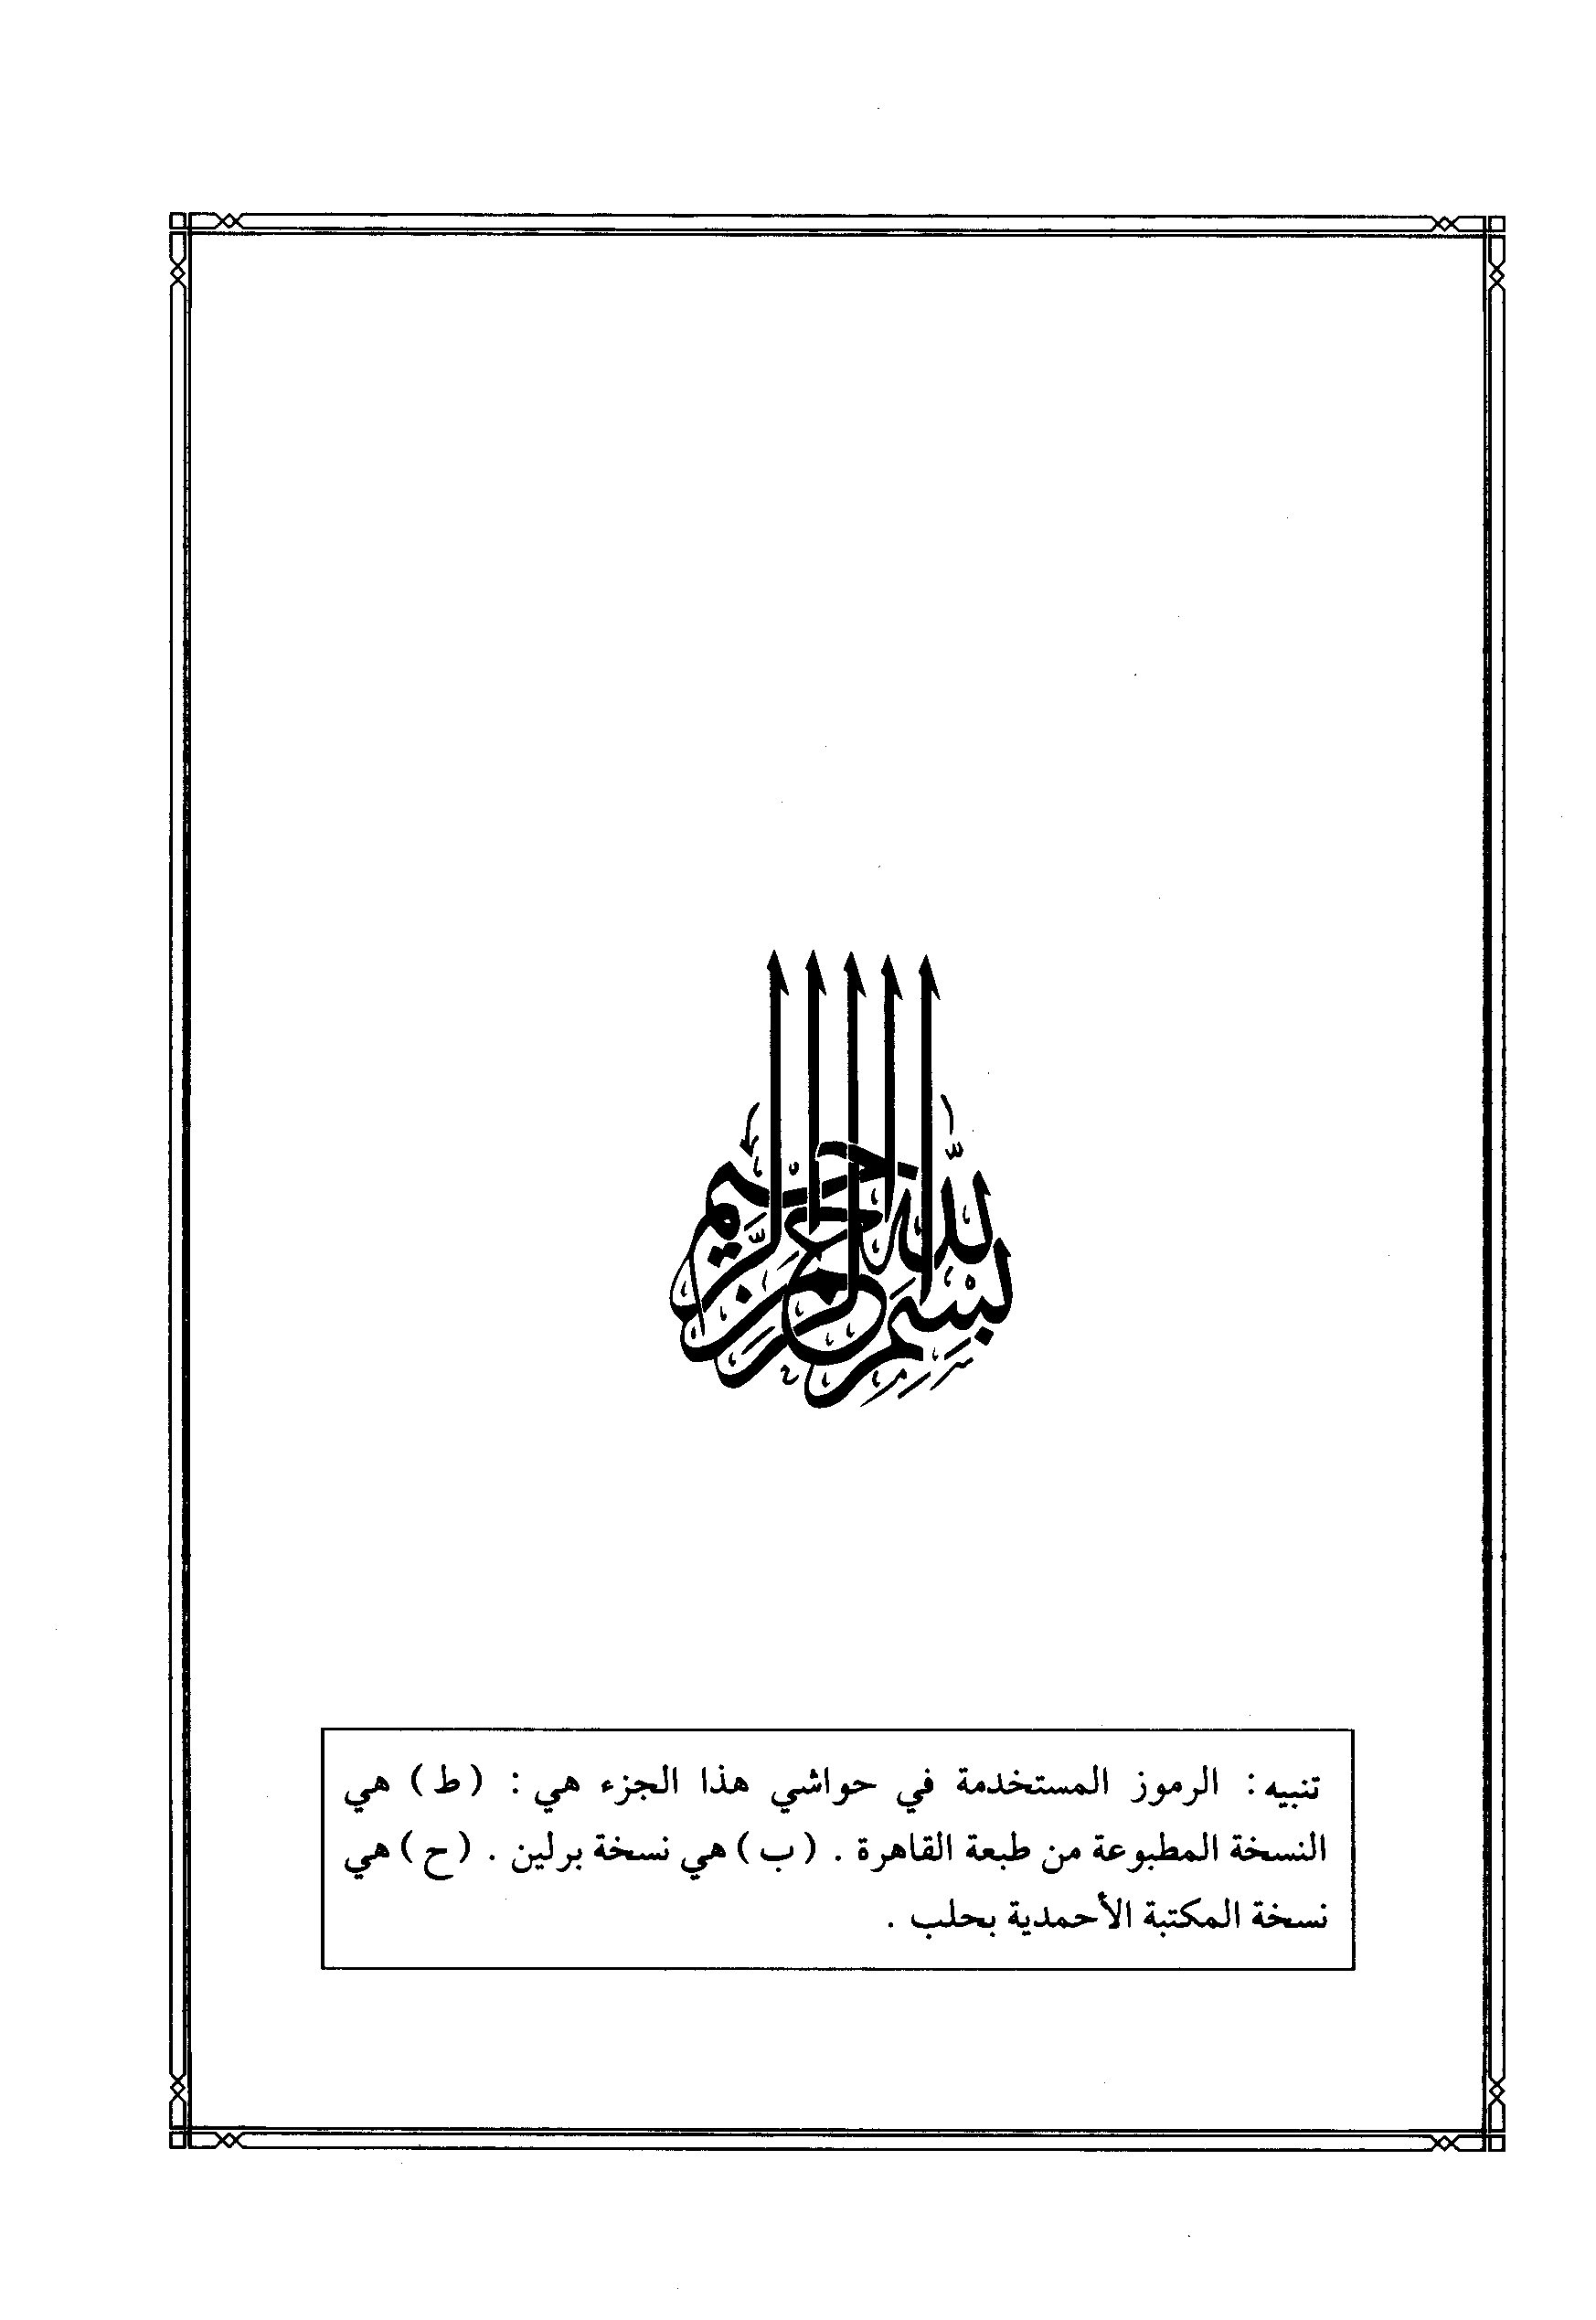 بسم الله الرحمن الرحيم
تنبيه: الرموز المستخدمة في حواشي هذا الجزء هي : ( ط ) هي
النسخة المطبوعة من طبعة القاهرة . ( ب ) هي نسخة برلين . ( ح ) هي
نسخة المكتبة الأحمدية بحلب .